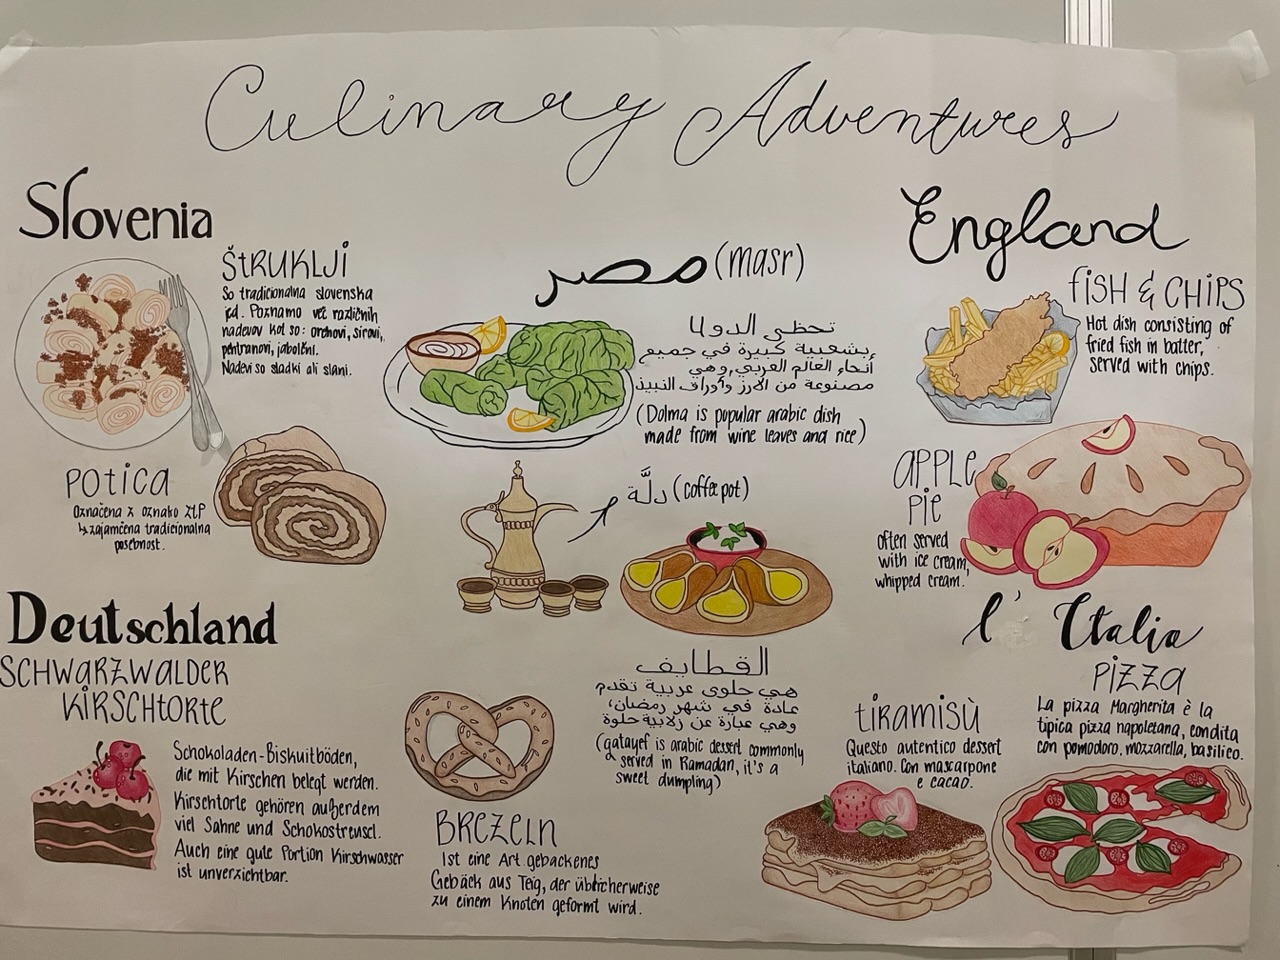 Culinary Adventures
Slovenia
ŠTRUKLJI
So tradicionalna slovenska
jed. Poznamo več različnih
nadevov kot so: orehovi, sirovi,
pehtranovi, jabolčni.
Nadevi so sladki ali slani.
POTICA
Označena z oznako ZTP
↳ zajamčena tradicionalna
posebnost.
مصر (masr)
تحظى
بشعبية كبيرة في جميع
أنحاء العالم العربي, وهي
مصنوعة من الارز وأوراق النبيذ
(Dolma is popular arabic dish
made from wine leaves and rice)
دلَّة (coffee pot)
القطايف
هي حلوى عربية تقدم
عادة في شهر رمضان،
وهي عبارة عن زلابية حلوة
(qatayef is arabic dessert commonly
served in Ramadan, it's a
sweet dumpling)
England
FISH & CHIPS
Hot dish consisting of
fried fish in batter,
served with chips.
APPLE
PIE
often served
with ice cream,
whipped cream.
Deutschland
SCHWARZWALDER
KIRSCHTORTE
Schokoladen-Biskuitböden,
die mit Kirschen belegt werden.
Kirschtorte gehören außerdem
viel Sahne und Schokostreusel.
Auch eine gute Portion Kirschwasser
ist unverzichtbar.
BREZELN
Ist eine Art gebackenes
Gebäck aus Teig, der üblicherweise
zu einem Knoten geformt wird.
l' Italia
TIRAMISÙ
Questo autentico dessert
italiano. Con mascarpone
e cacao.
PIZZA
La pizza Margherita è la
tipica pizza napoletana, condita
con pomodoro, mozzarella, basilico.